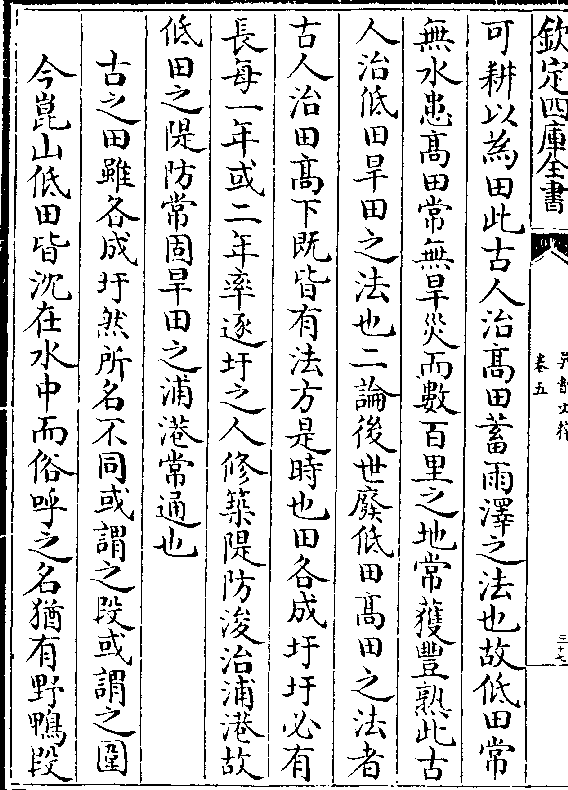 欽定四庫全書
卷五
三十七
可耕以為田此古人治髙田蓄雨澤之法也故低田常
無水患髙田常無旱災而數百里之地常獲豐熟此古
人治低田旱田之法也二論後世廢低田髙田之法者
古人治田髙下既皆有法方是時也田各成圩圩必有
長每一年或二年率逐圩之人修築隄防浚治浦港故
低田之隄防常固旱田之浦港常通也
古之田雖各成圩然所名不同或謂之段或謂之圍
今崑山低田皆沈在水中而俗呼之名猶有野鴨段